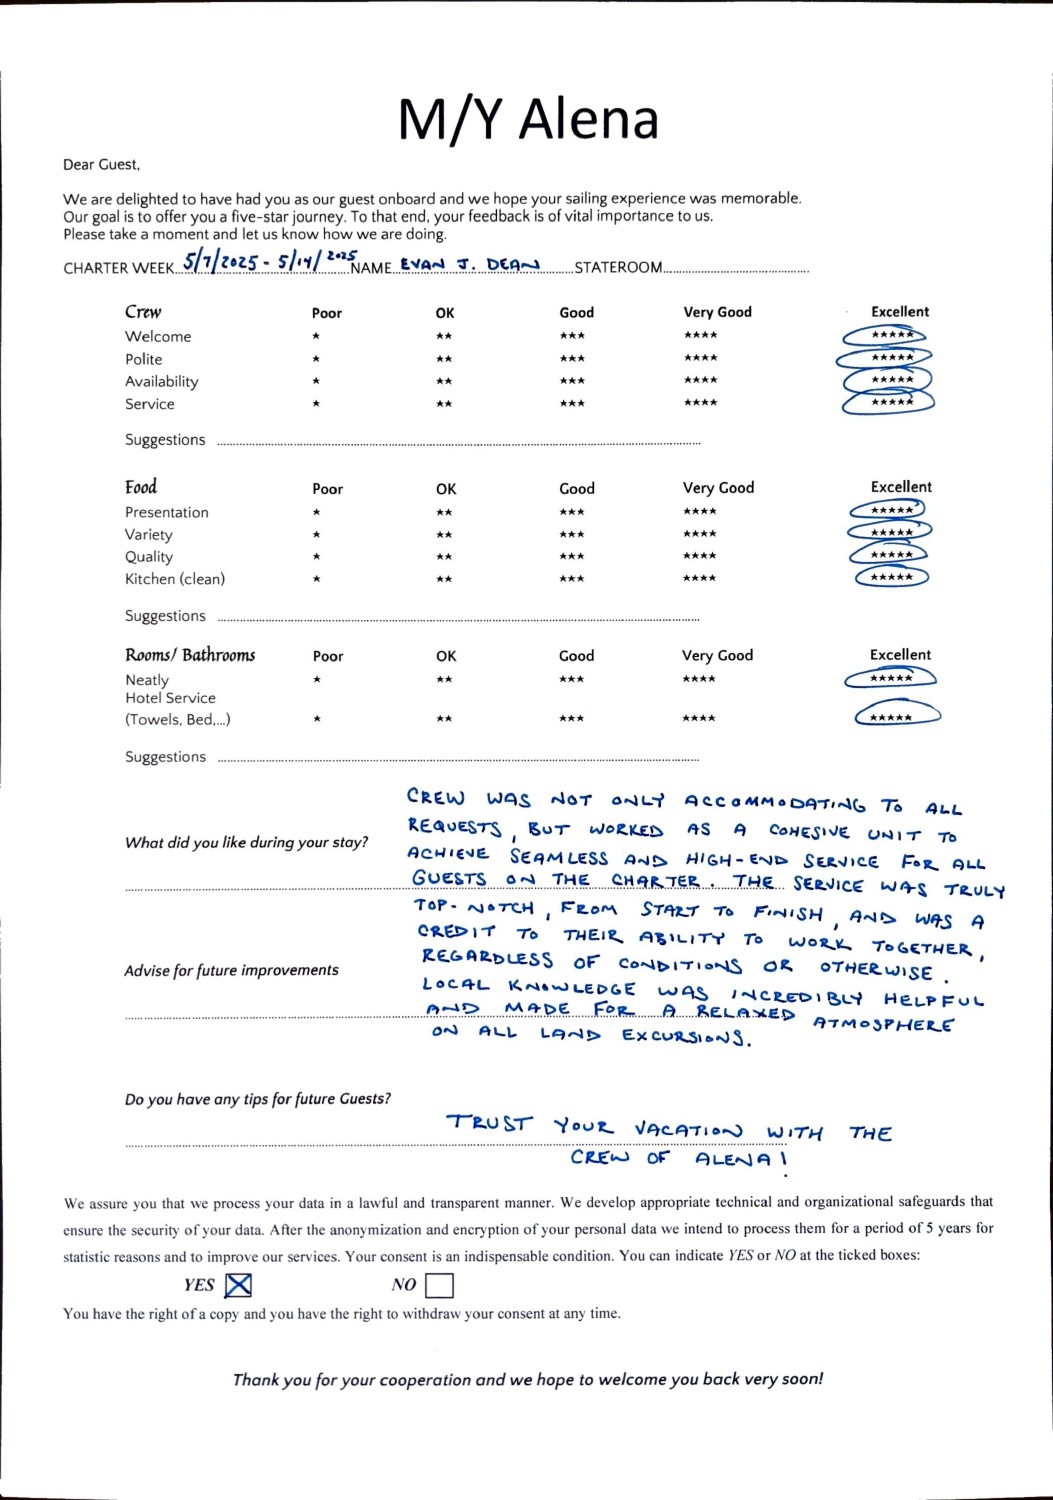 M/Y Alena
Dear Guest,
We are delighted to have had you as our guest onboard and we hope your sailing experience was memorable.
Our goal is to offer you a five-star journey. To that end, your feedback is of vital importance to us.
Please take a moment and let us know how we are doing.
CHARTER WEEK 5/7/2025 - 5/14/2025 NAME EVAN J. DEAN STATEROOM
Crew Poor OK Good Very Good Excellent
Welcome ★ ★★ ★★★ ★★★★ ★★★★★
Polite ★ ★★ ★★★ ★★★★ ★★★★★
Availability ★ ★★ ★★★ ★★★★ ★★★★★
Service ★ ★★ ★★★ ★★★★ ★★★★★
Suggestions
Food Poor OK Good Very Good Excellent
Presentation ★ ★★ ★★★ ★★★★ ★★★★★
Variety ★ ★★ ★★★ ★★★★ ★★★★★
Quality ★ ★★ ★★★ ★★★★ ★★★★★
Kitchen (clean) ★ ★★ ★★★ ★★★★ ★★★★★
Suggestions
Rooms/ Bathrooms Poor OK Good Very Good Excellent
Neatly ★ ★★ ★★★ ★★★★ ★★★★★
Hotel Service
(Towels, Bed,...) ★ ★★ ★★★ ★★★★ ★★★★★
Suggestions
What did you like during your stay?
CREW WAS NOT ONLY ACCOMMODATING TO ALL
REQUESTS, BUT WORKED AS A COHESIVE UNIT TO
ACHIEVE SEAMLESS AND HIGH-END SERVICE FOR ALL
GUESTS ON THE CHARTER. THE SERVICE WAS TRULY
TOP-NOTCH, FROM START TO FINISH, AND WAS A
CREDIT TO THEIR ABILITY TO WORK TOGETHER,
REGARDLESS OF CONDITIONS OR OTHERWISE.
LOCAL KNOWLEDGE WAS INCREDIBLY HELPFUL
AND MADE FOR A RELAXED ATMOSPHERE
ON ALL LAND EXCURSIONS.
Advise for future improvements
Do you have any tips for future Guests?
TRUST YOUR VACATION WITH THE
CREW OF ALENA!
We assure you that we process your data in a lawful and transparent manner. We develop appropriate technical and organizational safeguards that
ensure the security of your data. After the anonymization and encryption of your personal data we intend to process them for a period of 5 years for
statistic reasons and to improve our services. Your consent is an indispensable condition. You can indicate YES or NO at the ticked boxes:
YES ☒ NO ☐
You have the right of a copy and you have the right to withdraw your consent at any time.
Thank you for your cooperation and we hope to welcome you back very soon!